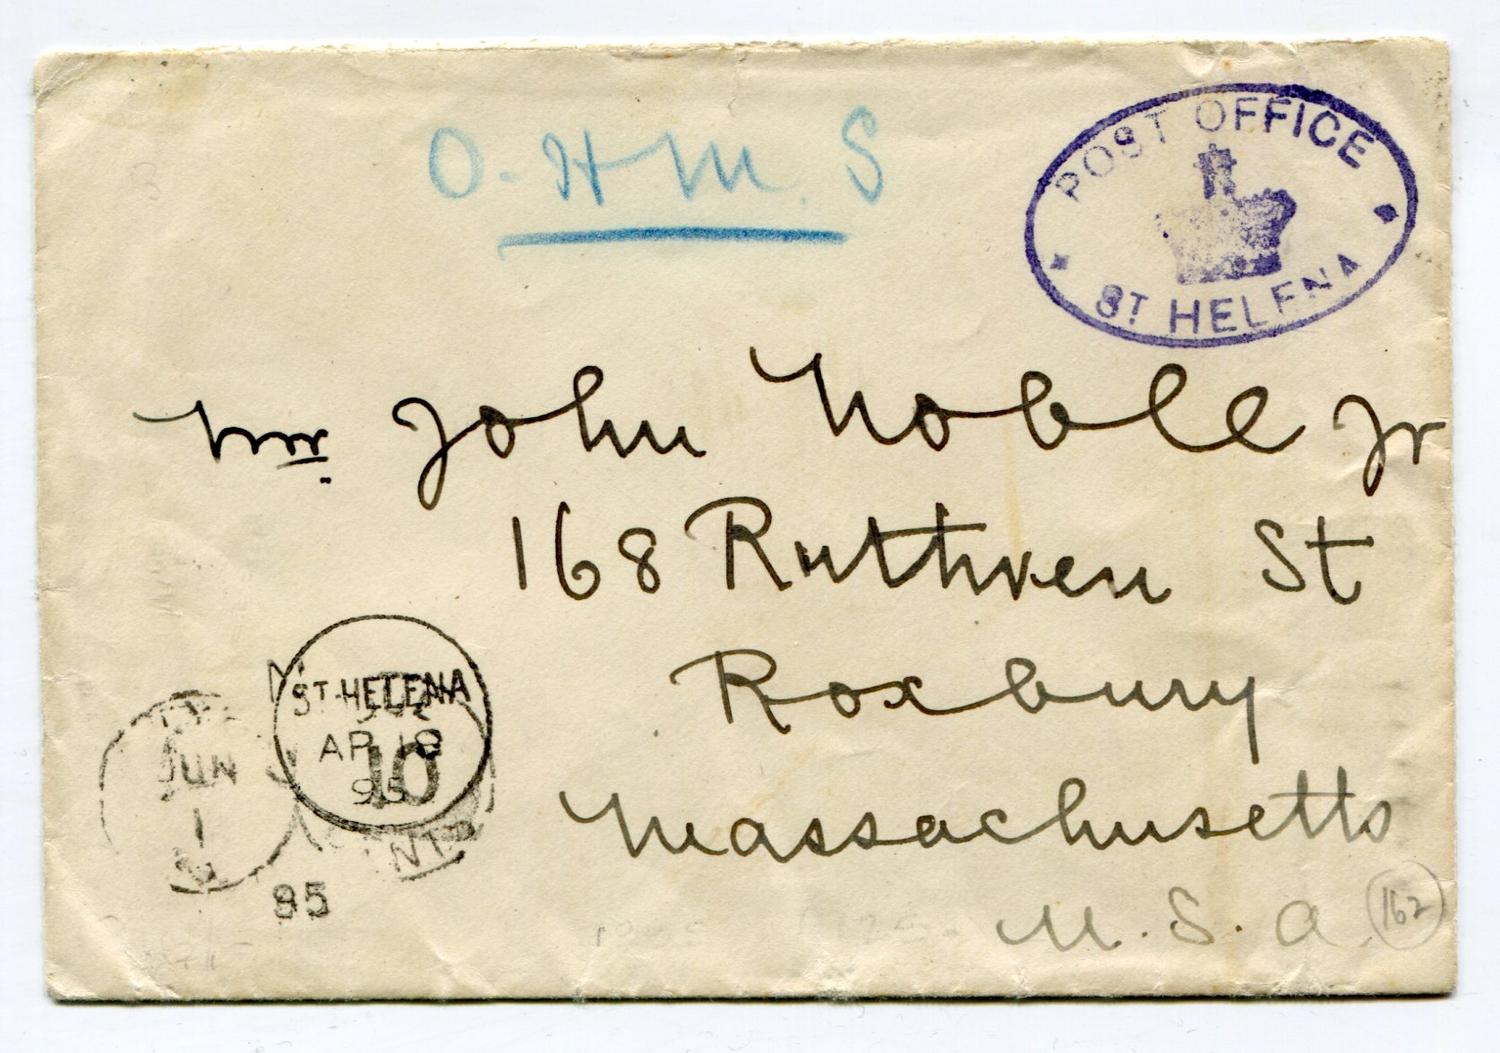 O. H M. S
POST OFFICE
ST HELENA
Mr John Noble Jr
168 Ruthven St
Roxbury
Massachusetts
U. S. A.
162
ST. HELENA
AP 18
95
10
JUN
1
95